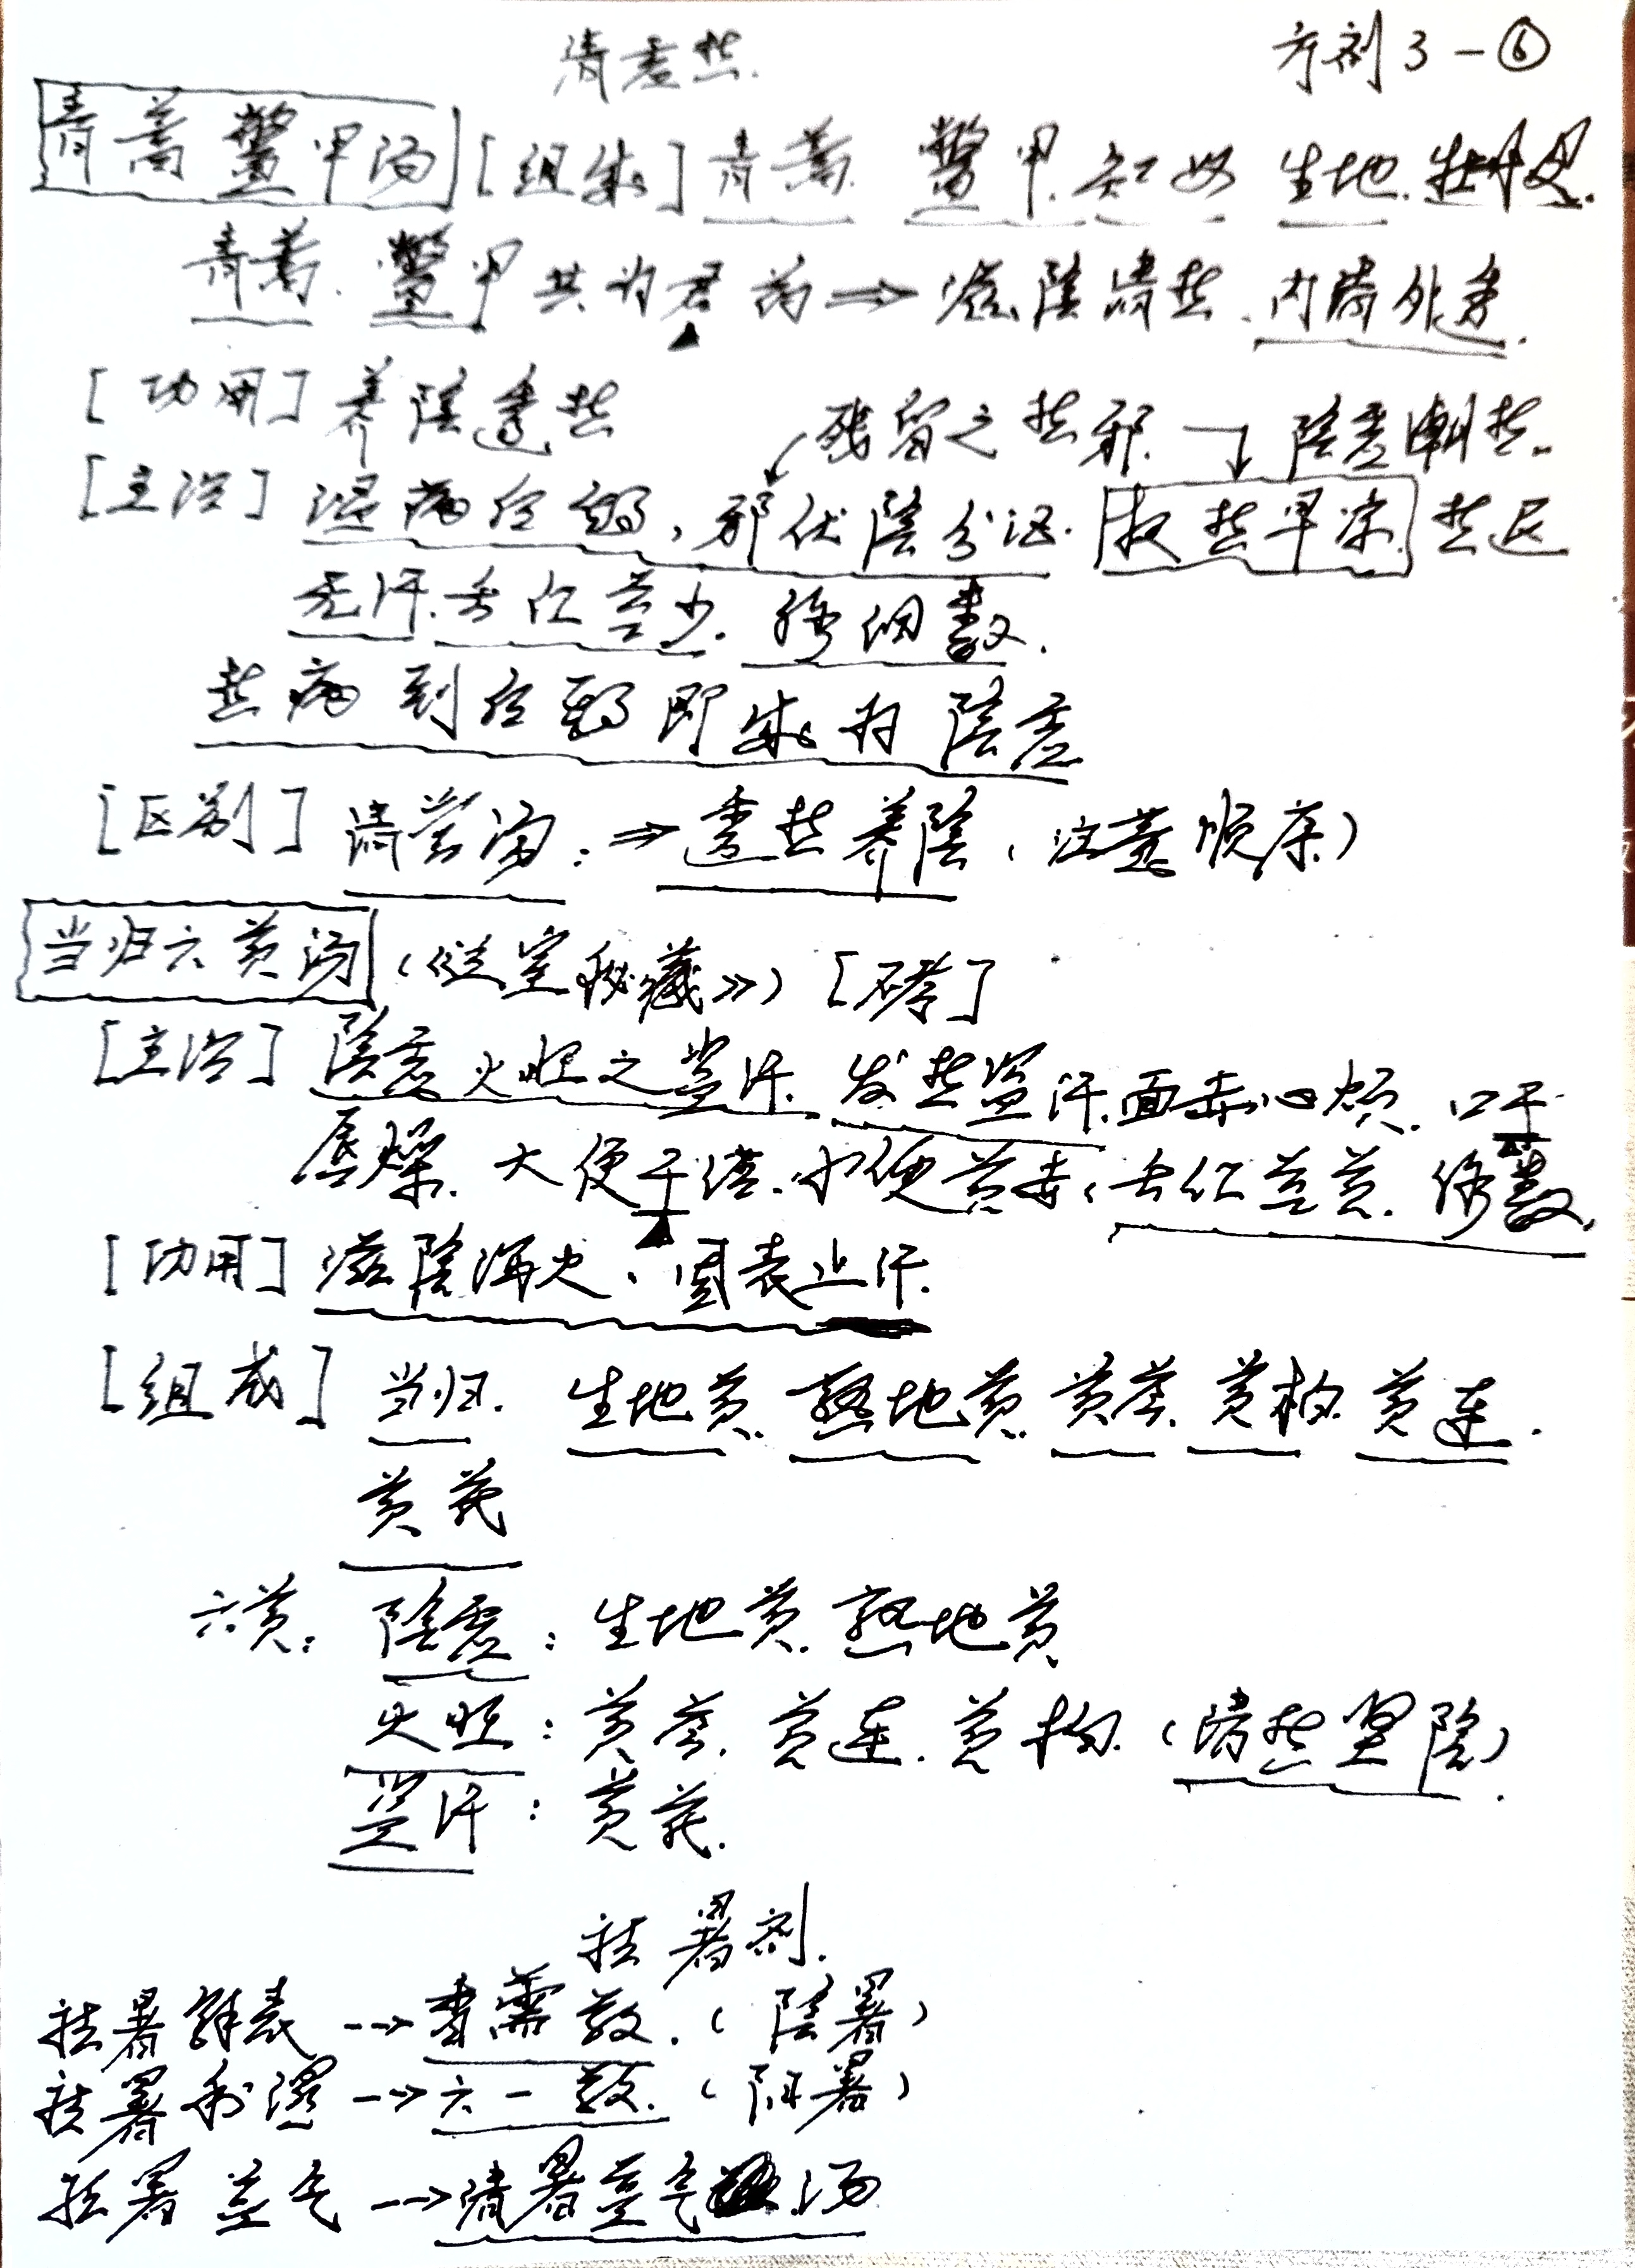 清虚热.
方剂3-⑥
青蒿鳖甲汤 [组成] 青蒿. 鳖甲. 知母 生地. 牡丹皮.
青蒿. 鳖甲共为君药⇒滋陰清热. 内清外透.
[功用] 养陰透热
残留之热邪. → 陰虚潮热.
[主治] 温病后期, 邪伏陰分证. 夜热早凉. 热退
无汗. 舌红苔少. 脉细数.
热病到后期即成为陰虚
[区别] 清营汤: ⇒透热养陰 (注意顺序)
当归六黄汤 (《兰室秘藏》) [考]
[主治] 陰虚火旺之盗汗. 发热盗汗. 面赤心烦. 口干
唇燥. 大便干结. 小便黄赤, 舌红苔黄. 脉数.
[功用] 滋陰泻火、固表止汗.
[组成] 当归. 生地黄. 熟地黄. 黄芩. 黄柏. 黄连.
黄芪
六黄: 陰虚: 生地黄. 熟地黄
火旺: 黄芩. 黄连. 黄柏. (清热坚陰).
盗汗: 黄芪.
祛暑剂.
祛暑解表-→香薷散. (陰暑)
祛暑利湿-→六一散. (阳暑)
祛暑益气-→清暑益气汤